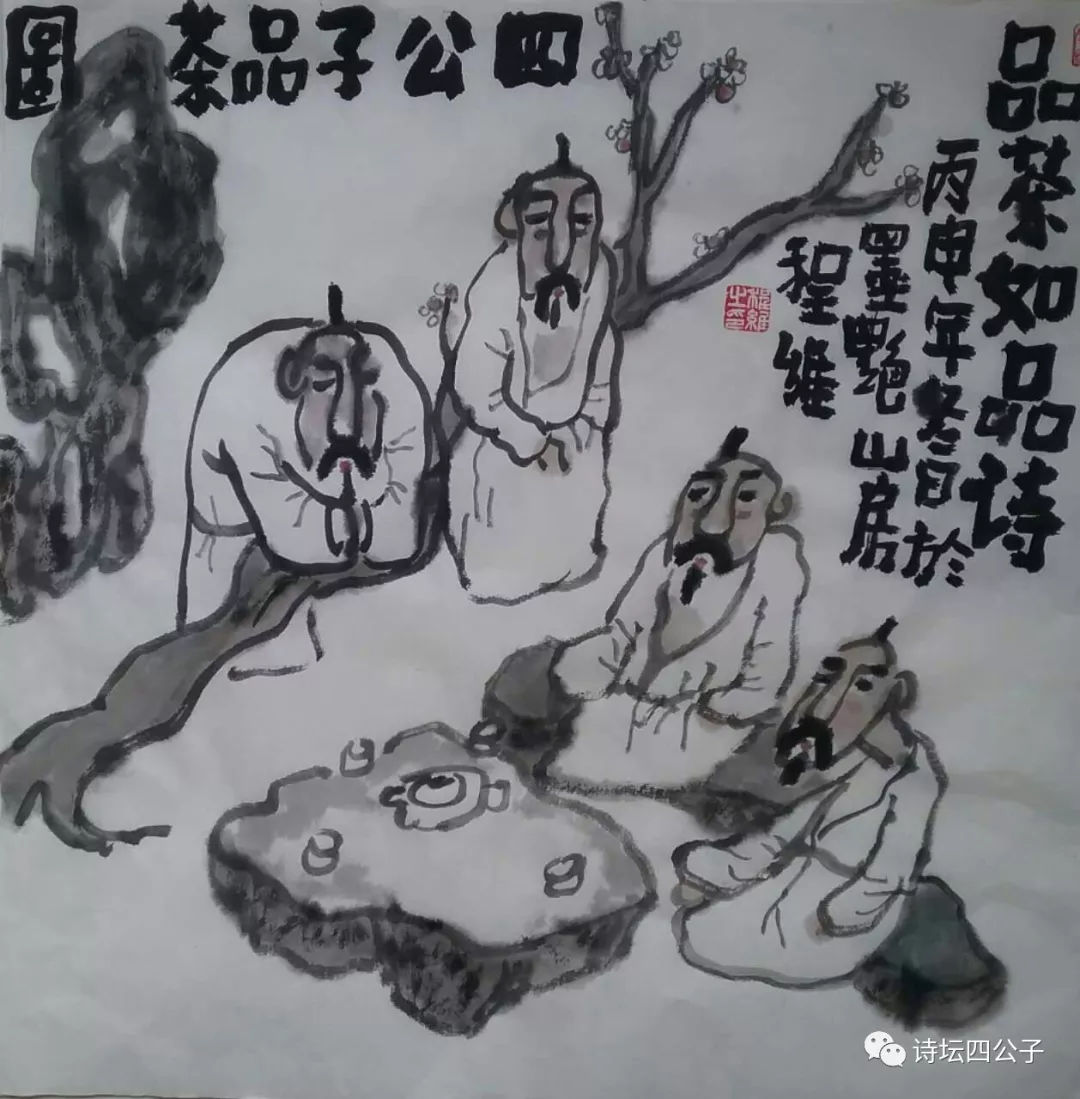 四公子品茶圖
品茶如品诗
丙申年冬日於
墨艷山房
程維
程維之印
诗坛四公子